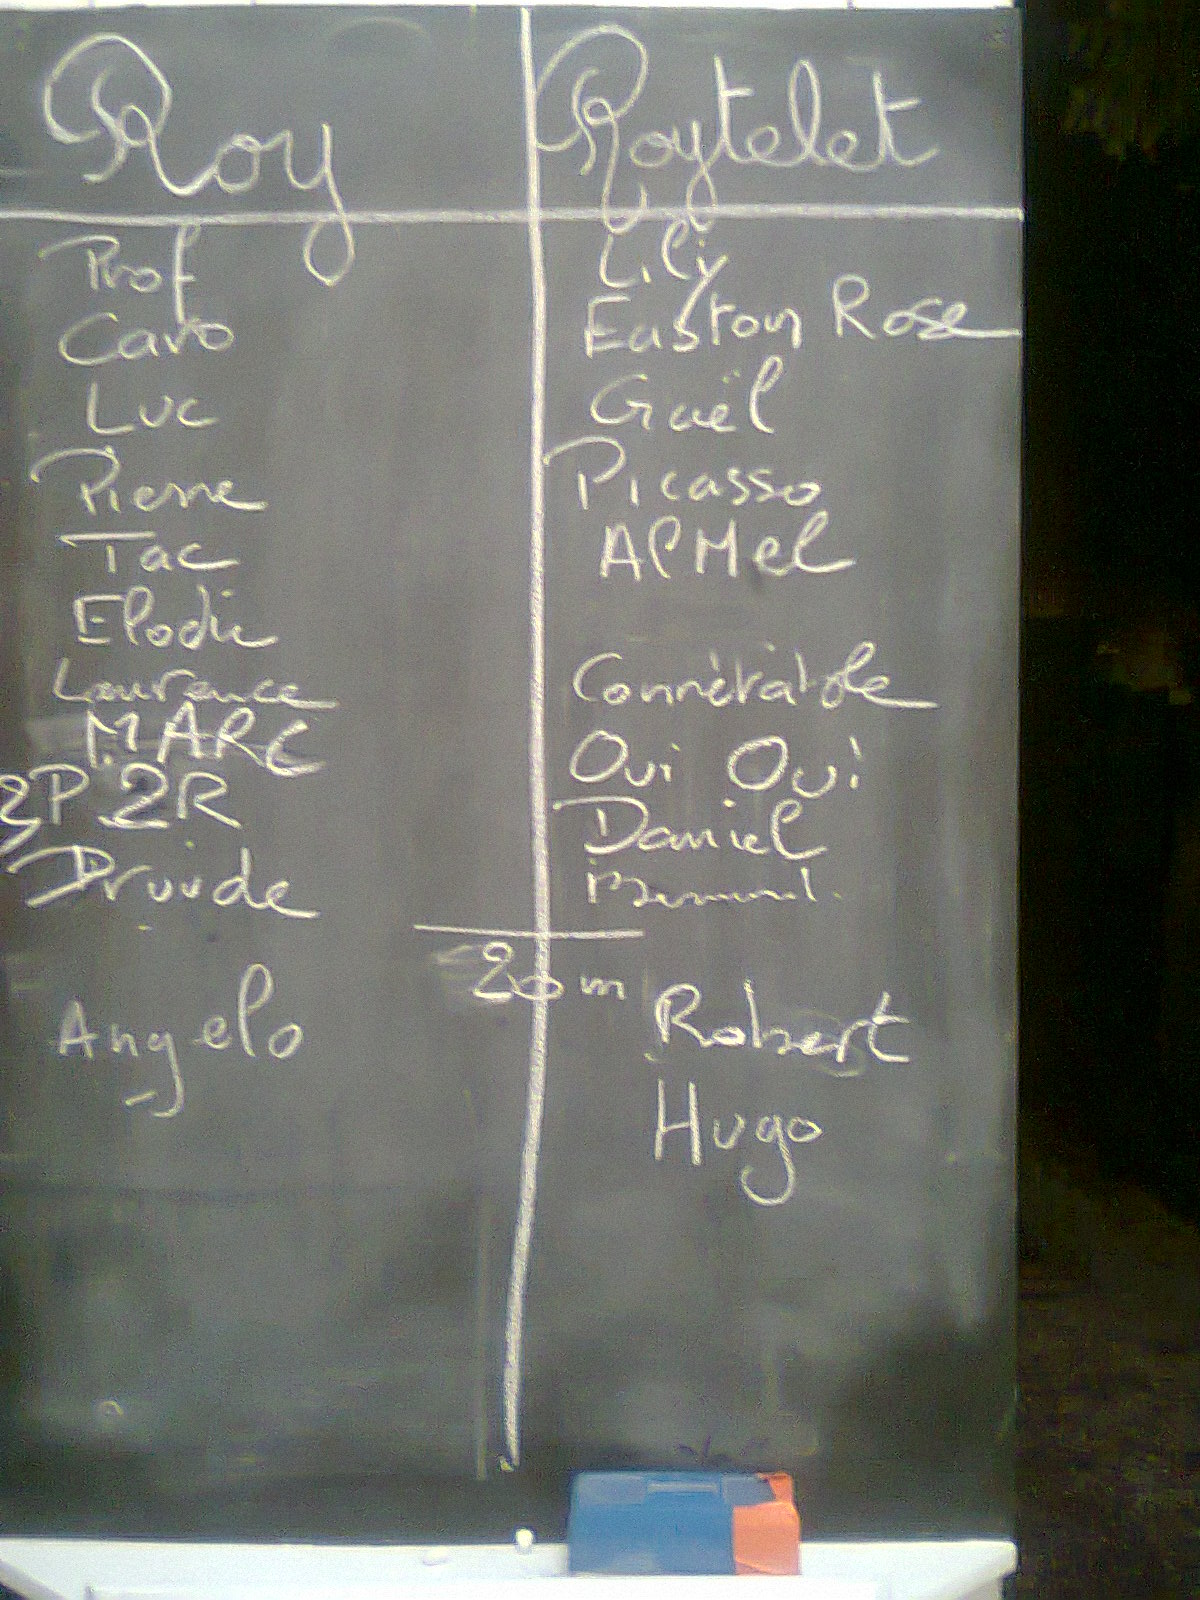 Roy
Roytelet
Prof
Caro
Luc
Pierre
Tac
Elodie
Laurence
MARC
3P 2R
Druide
Angelo
Lily
Easton Rose
Gaël
Picasso
AlMel
Connétable
Oui Oui
Daniel
20 m
Robert
Hugo